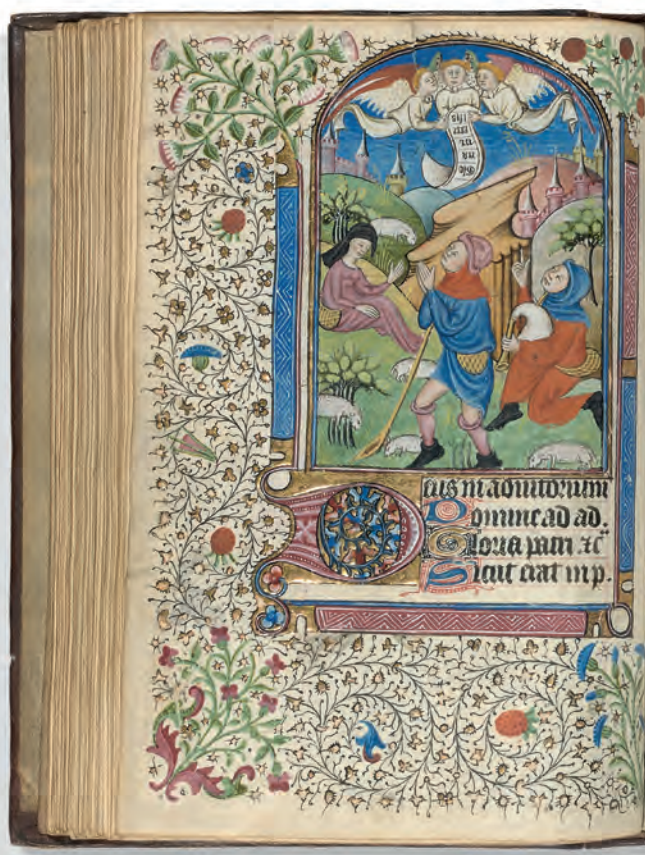 Deus in adiutorium
Domine ad ad.
Gloria patri. ⁊c̃
Sicut erat in p.